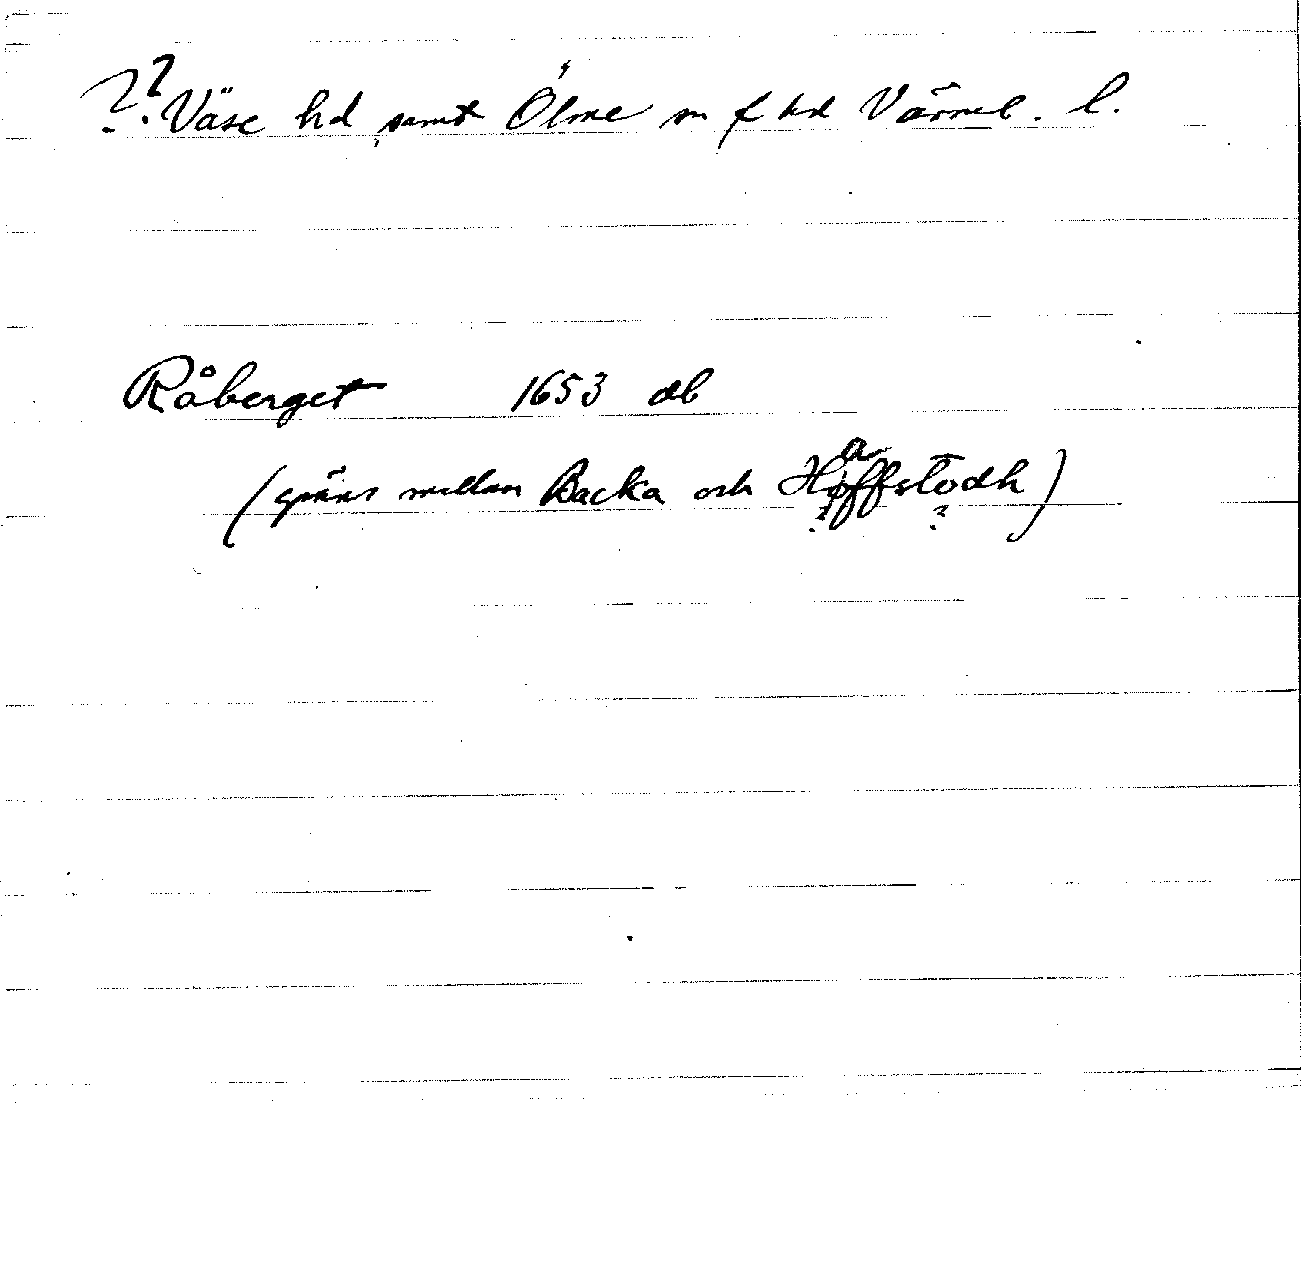 ?? Väse hd samt Ölme m fl hd Värml. l.
Råberget 1653 db
(gräns mellan Backa och Haffstodh)
? ?